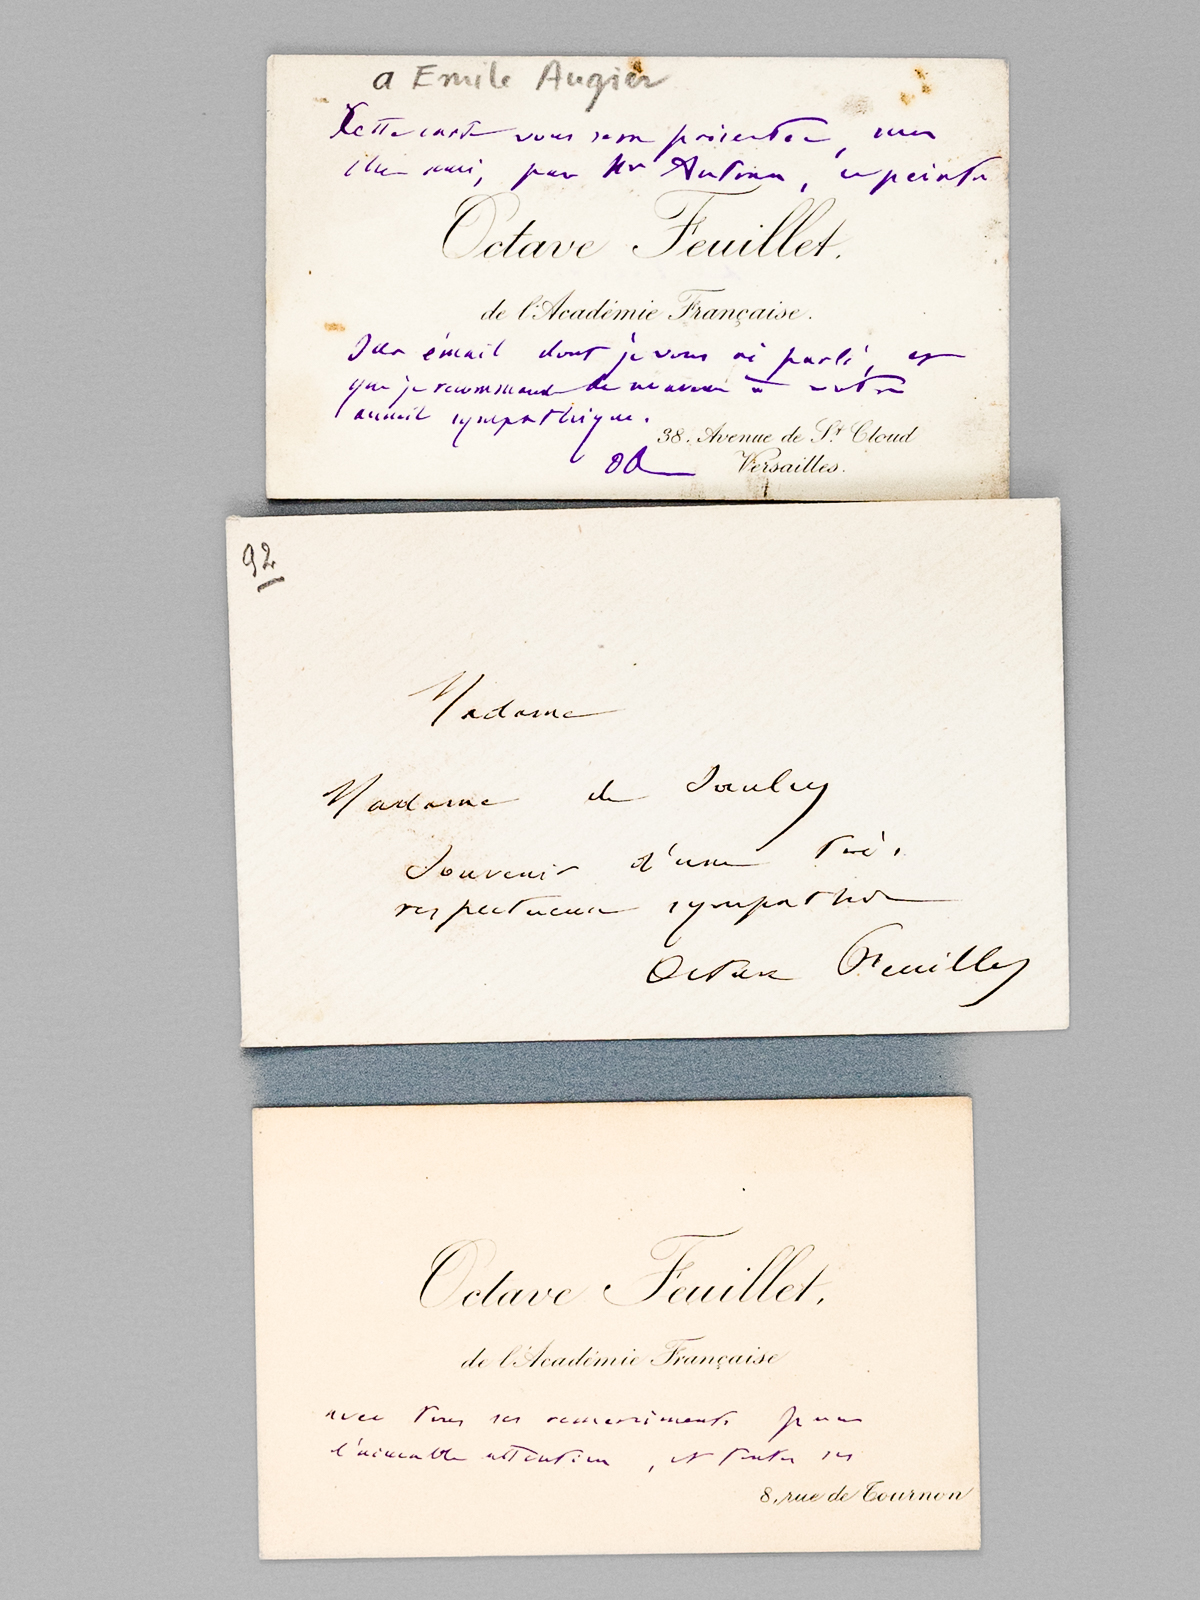 a Emile Augier
Cette carte vous sera présentée, mon
cher ami, par Mr Antona, ce peintre
Octave Feuillet.
de l'Académie Française.
Sur émail dont je vous ai parlé, et
que je recommande de nouveau à votre
accueil sympathique.
38. Avenue de St Cloud
Versailles.
92
Madame
Madame de Saulcy
Souvenir d'une très
respectueuse sympathie
Octave Feuillet
Octave Feuillet,
de l'Académie Française
avec tous ses remerciements pour
l'aimable attention, et toutes ses
8, rue de Tournon